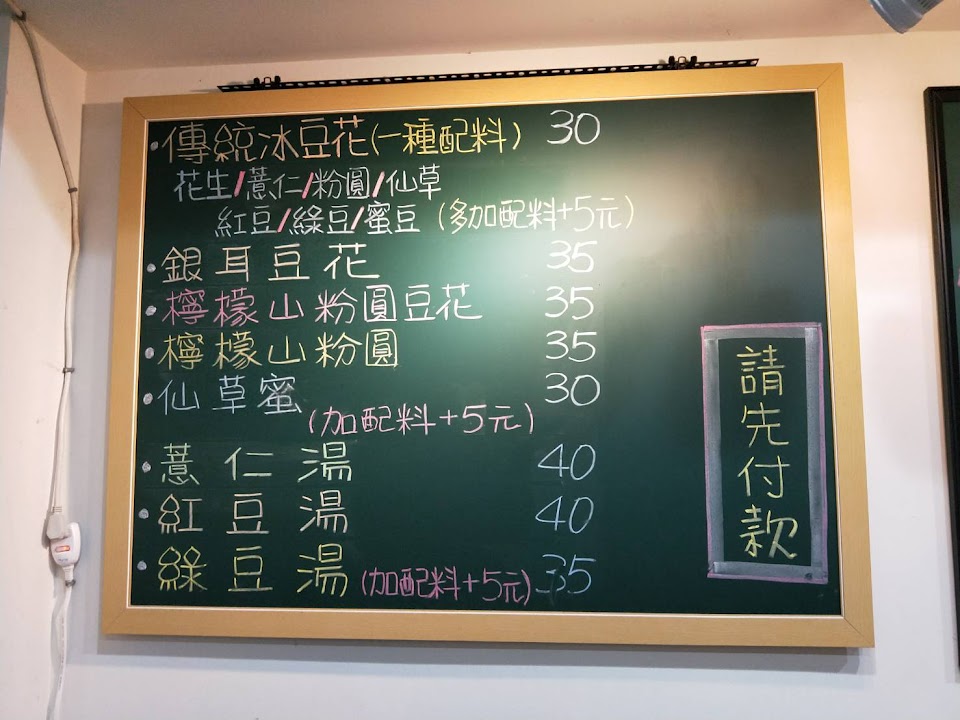 傳統冰豆花(一種配料) 30
花生/薏仁/粉圓/仙草
紅豆/綠豆/蜜豆 (多加配料+5元)
銀耳豆花 35
檸檬山粉圓豆花 35
檸檬山粉圓 35
仙草蜜 30
(加配料+5元)
薏仁湯 40
紅豆湯 40
綠豆湯 (加配料+5元) 35
請先付款